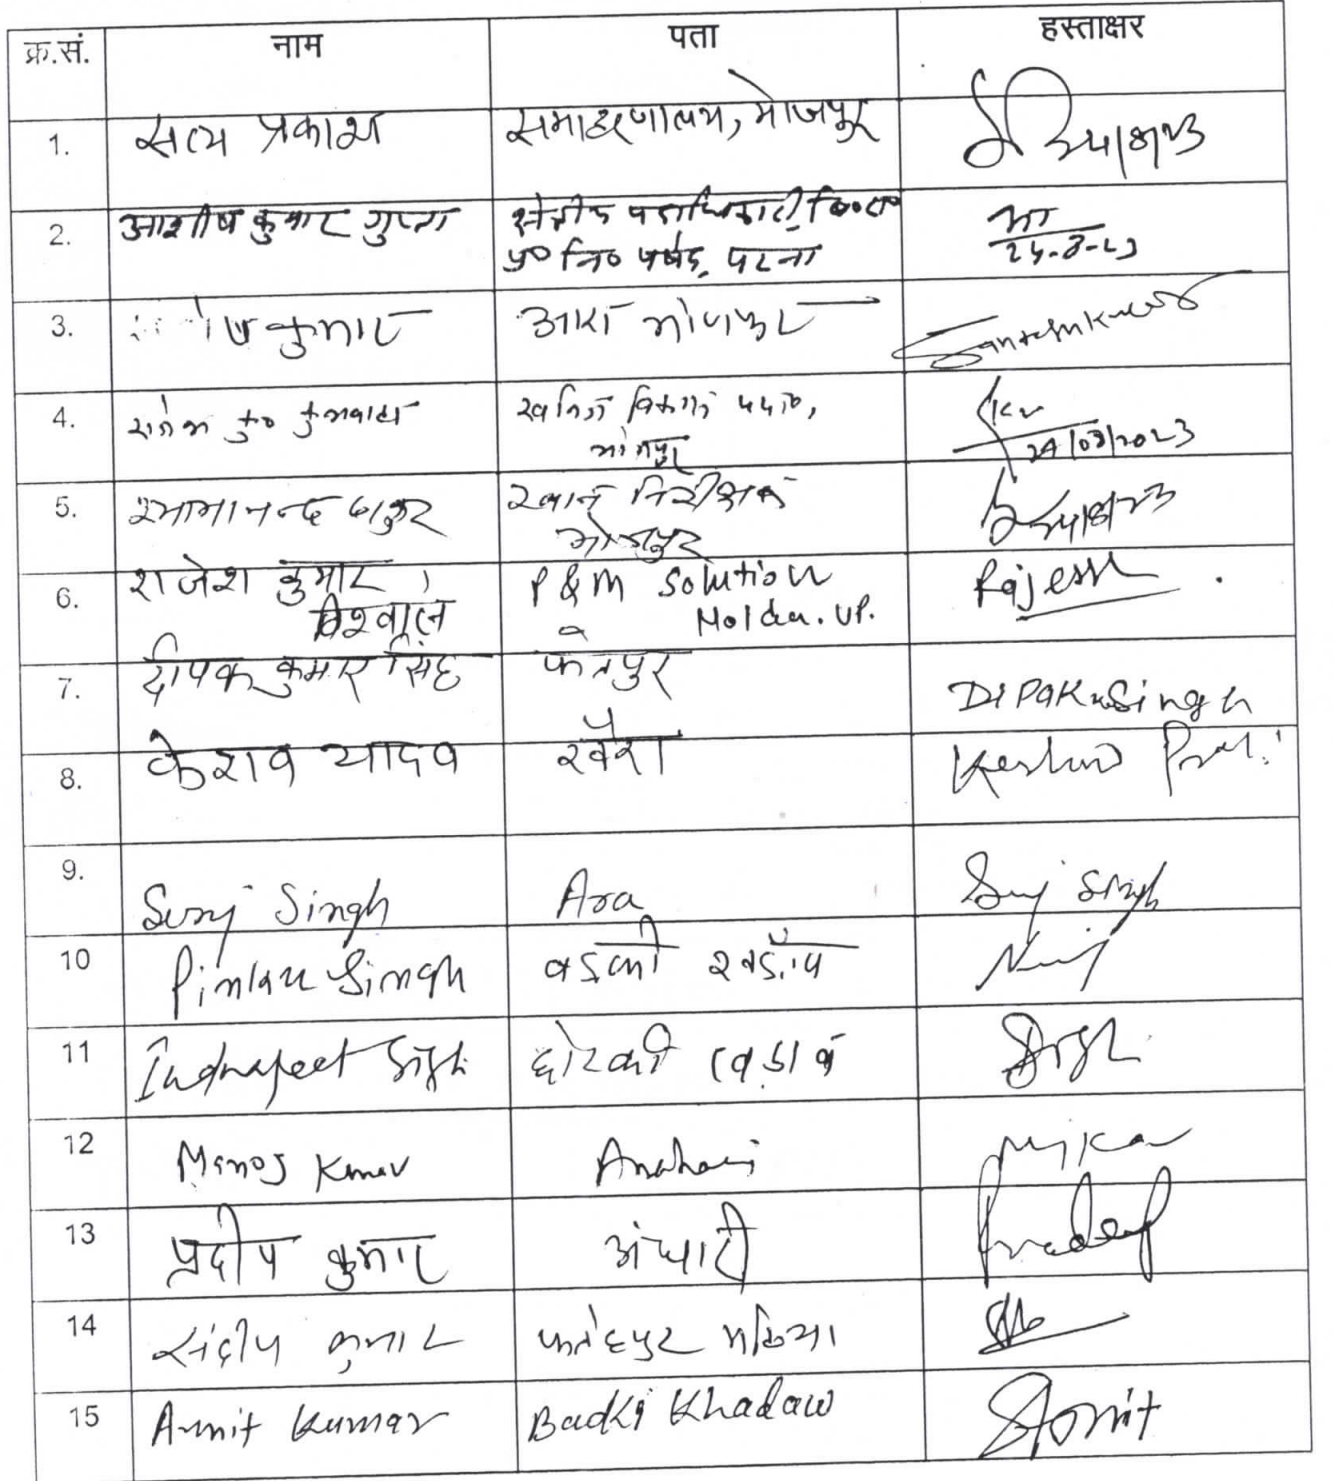 क्र.सं. नाम पता हस्ताक्षर
1. सत्य प्रकाश समाहरणालय, भोजपुर 24/8/23
2. आशीष कुमार गुप्ता क्षेत्रीय पदाधिकारी, बि०रा०
प्र० नि० पर्षद, पटना 24-8-23
3. कुमार आरा भोजपुर Santosh Kumar
4. खनिज विकास पदा०,
भोजपुर 24/08/2023
5. श्यामानन्द ठाकुर खान निरीक्षक
भोजपुर 24/8/23
6. राजेश कुमार, P & M Solution Rajesh
विश्वाल Noida. UP.
7. दीपक कुमार सिंह फतेपुर DIPAK Singh
8. केशव यादव खैरा Keshav
9. Suraj Singh Ara Suraj Singh
10 Pintu Singh बड़की खड़ाँव
11 Indrajeet Singh छोटकी खडाव
12 Manoj Kumar Andhari
13 प्रदीप कुमार अंधारी Pradeep
14 संदीप कुमार फतेहपुर मठिया
15 Amit Kumar Badki Khadaw Amit